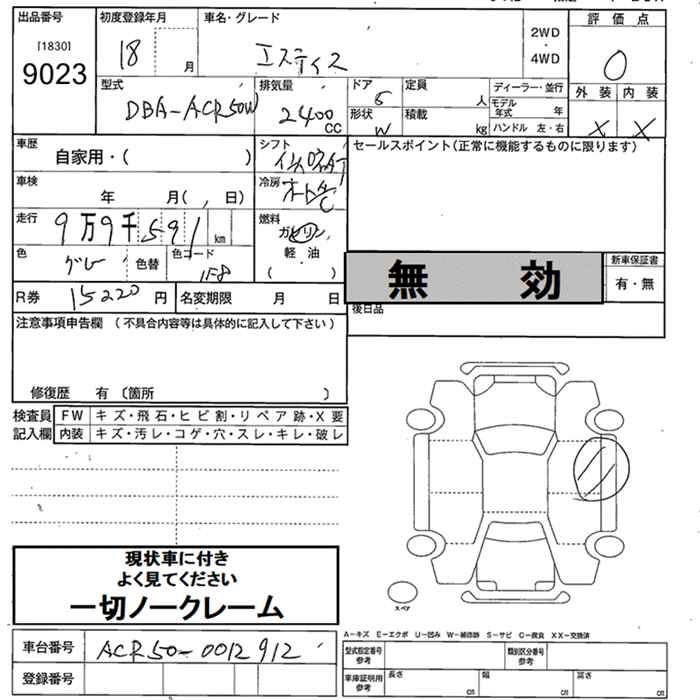 出品番号 初度登録年月 車名・グレード 評価点
[1830] 18 月 エスティマ 2WD・4WD 0
9023
型式 排気量 ドア 定員 ディーラー・並行 外装 内装
DBA-ACR50W 2400 CC 5 人 モデル年式 年 X X
形状 W 積載 kg ハンドル 左・右
車歴 シフト セールスポイント(正常に機能するものに限ります)
自家用・( )
車検 冷房
年 月( 日)
走行 9万9千591 km 燃料
ガソリン
色 グレー 色替 色コード 1F8 軽・油
( )
無効
新車保証書
有・無
R券 15220 円 名変期限 月 日
後日品
注意事項申告欄 (不具合内容等は具体的に記入して下さい)
修復歴 有 〔箇所 〕
検査員 FW キズ・飛石・ヒビ割・リペア跡・X要
記入欄 内装 キズ・汚レ・コゲ・穴・スレ・キレ・破レ
現状車に付き
よく見てください
一切ノークレーム
スペア
A-キズ E-エクボ U-凹み W-補修跡 S-サビ C-腐食 XX-交換済
車台番号 ACR50-0012912
型式指定番号 参考 類別区分番号 参考
登録番号
車庫証明用 参考 長さ cm 幅 cm 高さ cm